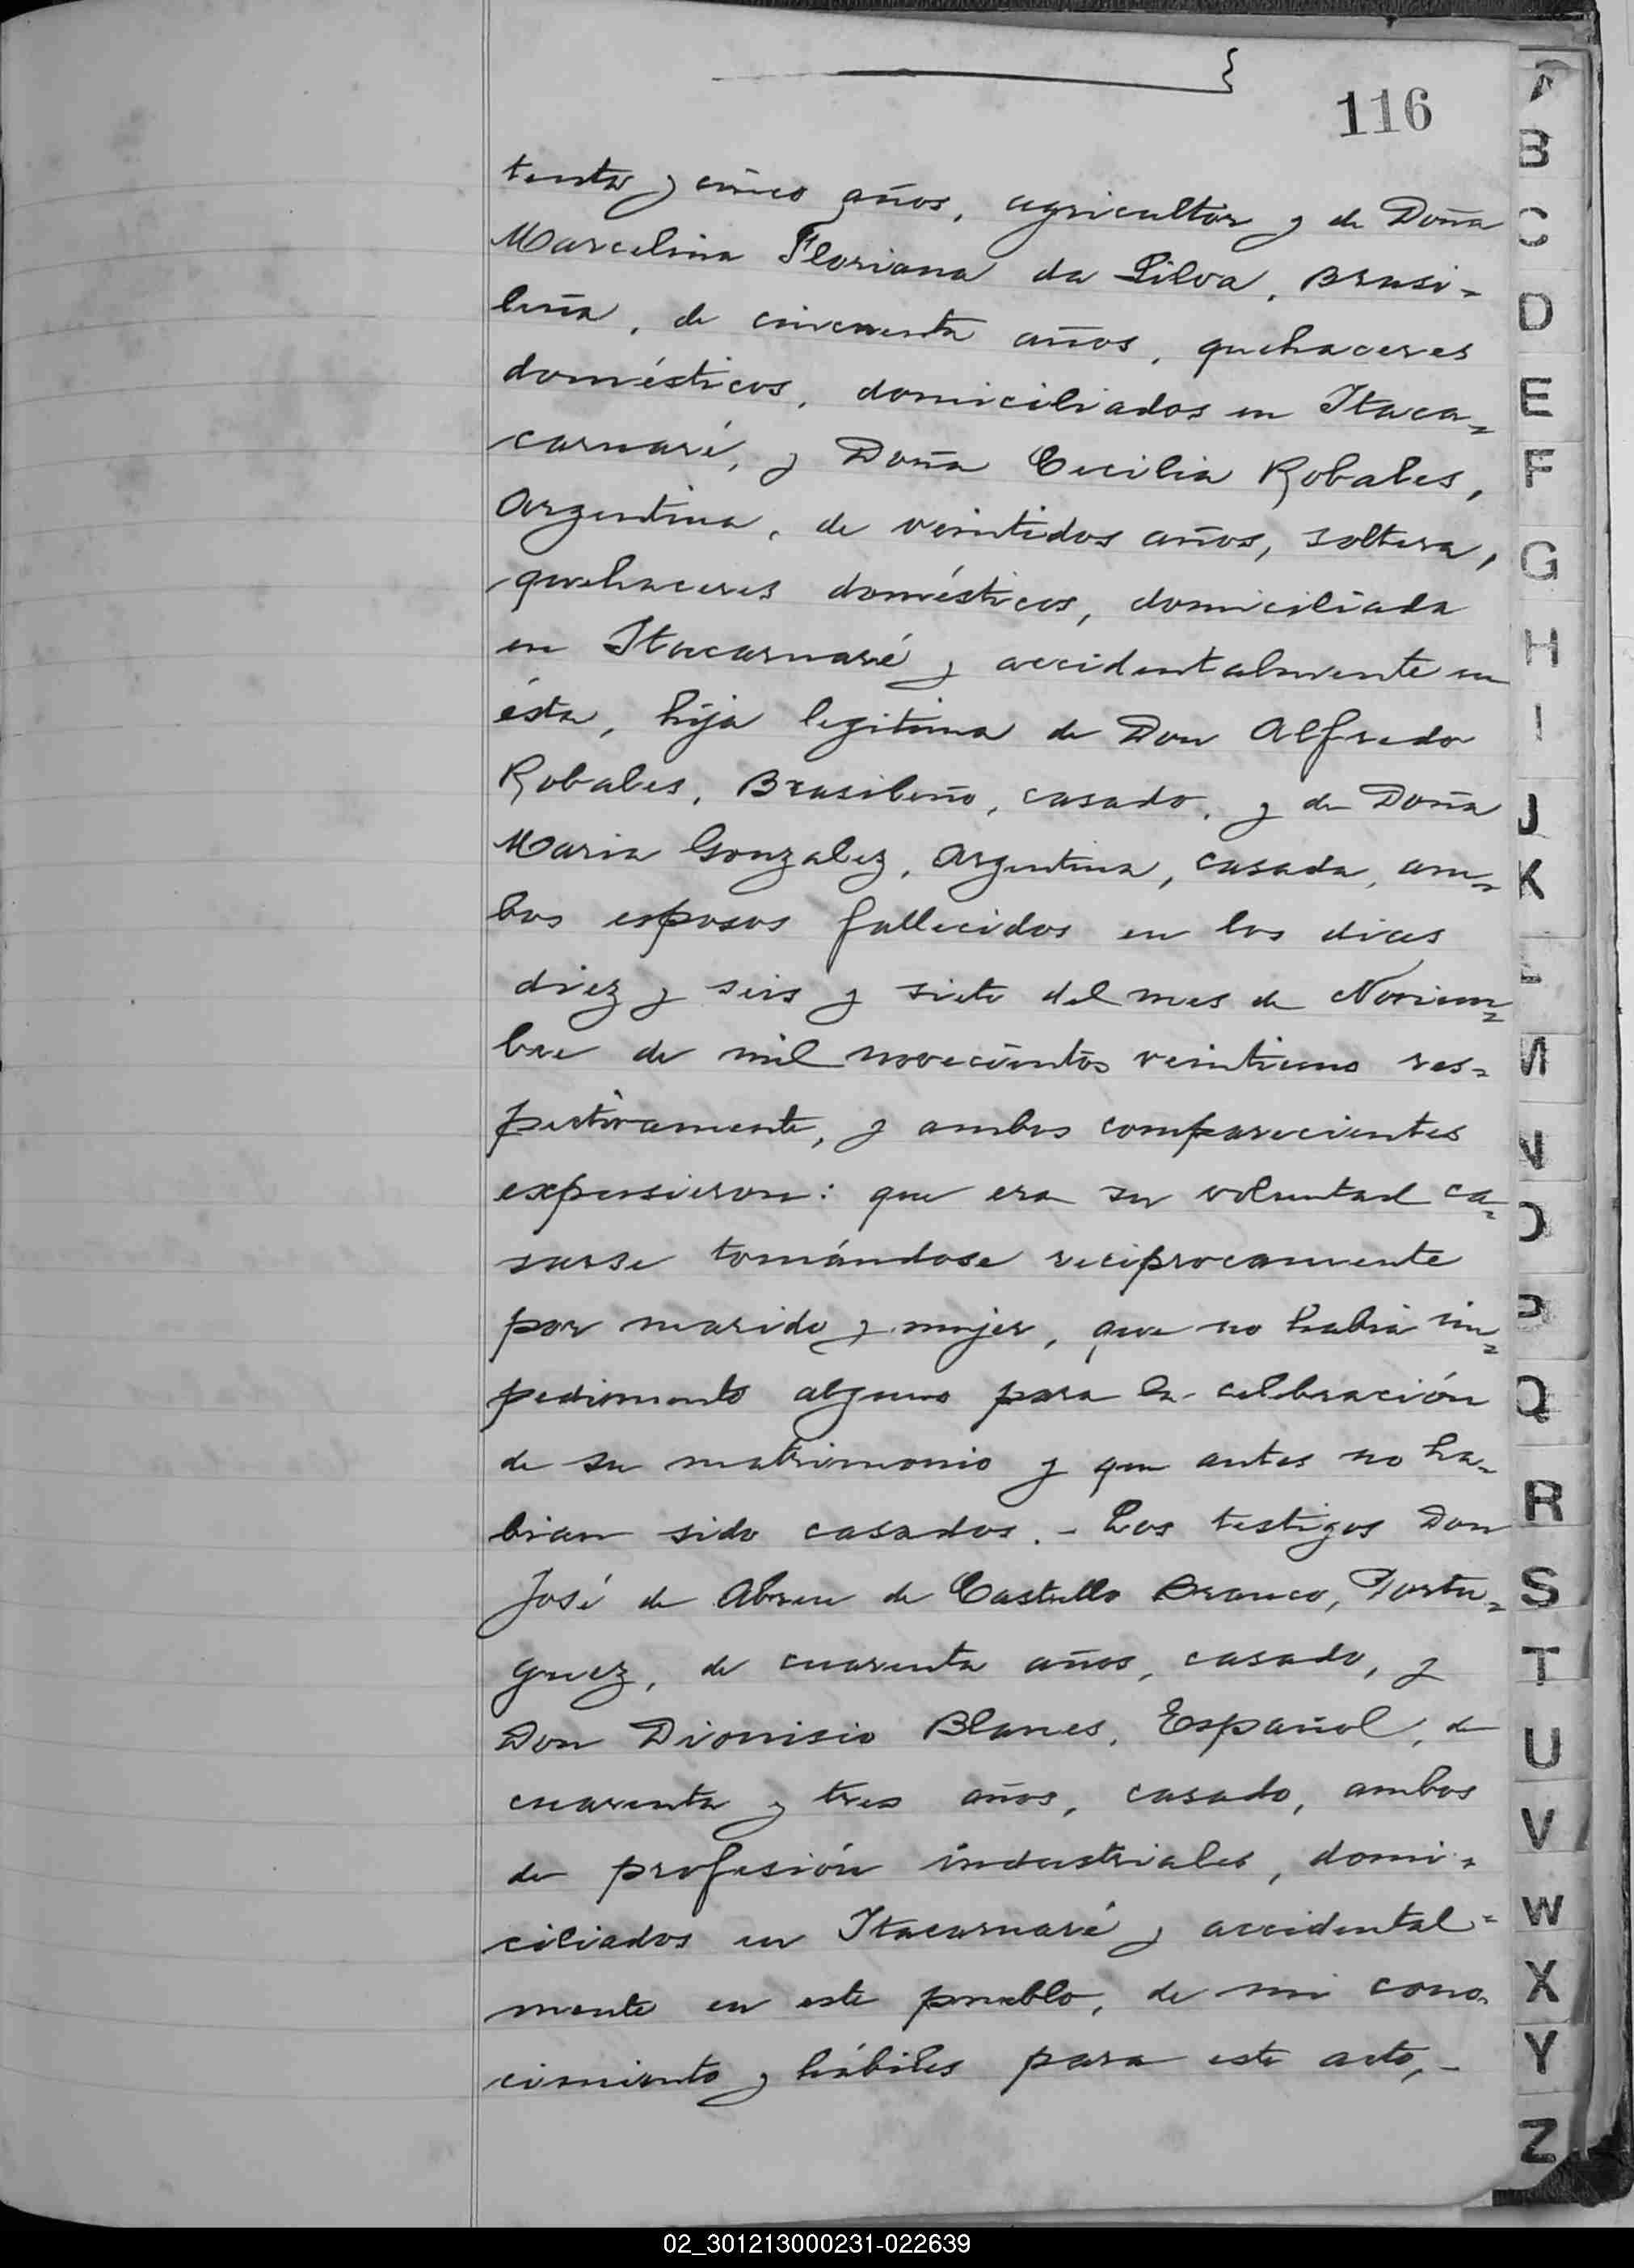 116
tenta y cinco años, agricultor y de Doña
Marcelina Floriana da Silva, Brasi-
leña, de cincuenta años, quehaceres
domésticos, domiciliados en Itaca-
carnaré, y Doña Cecilia Robales,
Argentina, de veintidos años, soltera,
quehaceres domésticos, domiciliada
en Itacarnaré y accidentalmente en
ésta, hija legitima de Don Alfredo
Robales, Brasileño, casado, y de Doña
Maria Gonzalez, Argentina, casada, am-
bos esposos fallecidos en los dias
diez y seis y siete del mes de Noviem-
bre de mil novecientos veintiuno res-
pectivamente, y ambos comparecientes
expusieron: que era su voluntad ca-
sarse tomándose reciprocamente
por marido y mujer, que no habia im-
pedimento alguno para la celebración
de su matrimonio y que antes no ha-
bian sido casados. - Los testigos Don
José de Abreu de Castello Branco, Portu-
guez, de cuarenta años, casado, y
Don Dionisio Blanes, Español, de
cuarenta y tres años, casado, ambos
de profesión industriales, domi-
ciliados en Itacarnaré y accidental-
mente en este pueblo, de mi cono-
cimiento y hábiles para este acto, -
A
B
C
D
E
F
G
H
I
J
K
L
M
N
O
P
Q
R
S
T
U
V
W
X
Y
Z
02_301213000231-022639